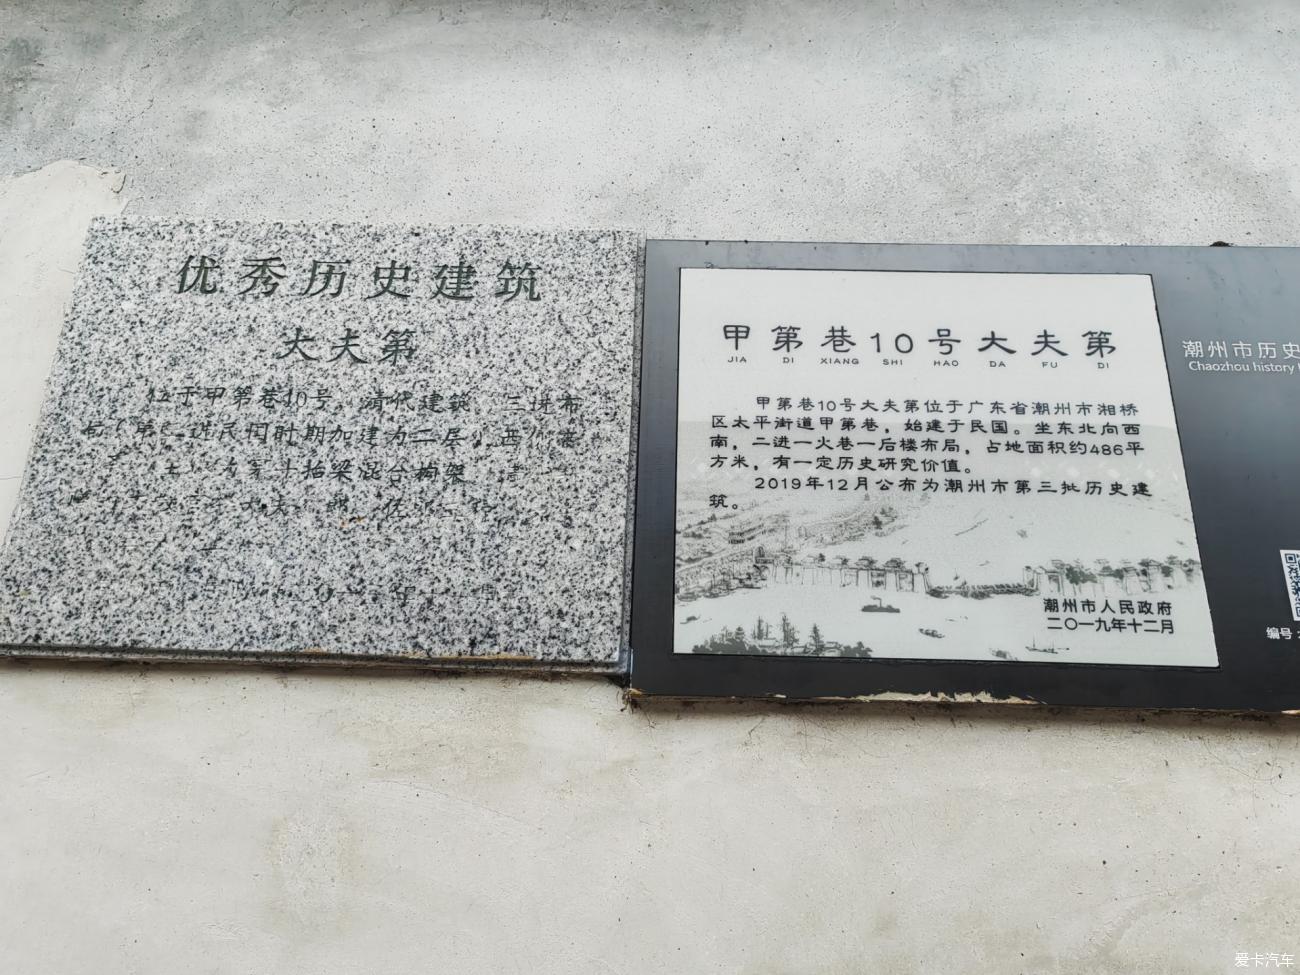 优秀历史建筑
大夫第
位于甲第巷10号，清代建筑 三进布
局（第二进民国时期加建为二层）
抬梁混合构架
甲第巷10号大夫第
JIA DI XIANG SHI HAO DA FU DI
甲第巷10号大夫第位于广东省潮州市湘桥
区太平街道甲第巷，始建于民国。坐东北向西
南，二进一火巷一后楼布局，占地面积约486平
方米，有一定历史研究价值。
2019年12月公布为潮州市第三批历史建
筑。
潮州市人民政府
二〇一九年十二月
潮州市历史
Chaozhou history
编号
爱卡汽车